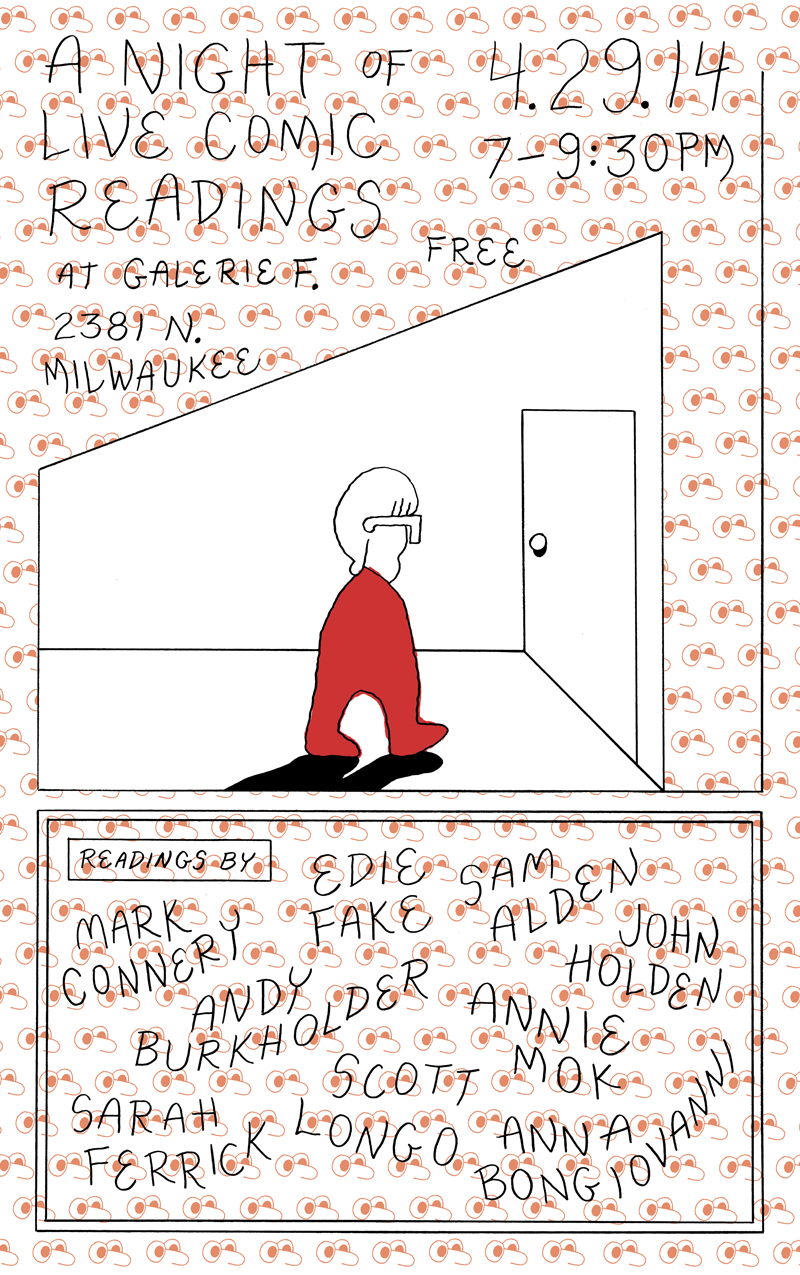 A NIGHT OF
LIVE COMIC
READINGS
4.29.14
7-9:30PM
AT GALERIE F.
2381 N.
MILWAUKEE
FREE
READINGS BY
EDIE
FAKE
SAM
ALDEN
MARK
CONNERY
JOHN
HOLDEN
ANDY
BURKHOLDER
ANNIE
MOK
SCOTT
LONGO
SARAH
FERRICK
ANNA
BONGIOVANNI